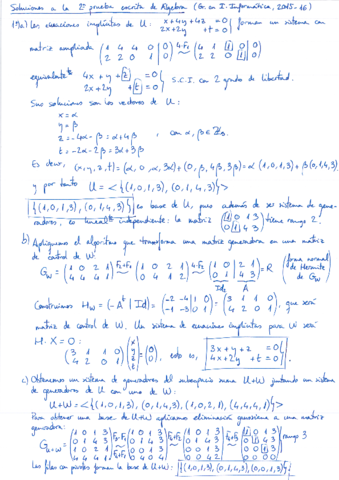 Soluciones a la 2ª prueba escrita de Álgebra (G. en I. Informática, 2015-16)
1) a) Las ecuaciones implícitas de U: x+4y+4z =0 } forman un sistema con
2x+2y +t =0
matriz ampliada (1 4 4 0 | 0) 4F₁ (4 1 1 0 | 0)
(2 2 0 1 | 0) ~ (2 2 0 1 | 0)
equivalente 4x + y + z =0 } S.C.I. con 2 grados de libertad.
2x+2y +t =0
Sus soluciones son los vectores de U:
x=α
y=β
z=-4α-β=α+4β
t=-2α-2β=3α+3β , con α, β∈ℤ₅.
Es decir, (x,y,z,t)=(α,0,α,3α)+(0,β,4β,3β)=α(1,0,1,3)+β(0,1,4,3)
y por tanto U=<{(1,0,1,3), (0,1,4,3)}>
{(1,0,1,3), (0,1,4,3)} es base de U, pues además de ser sistema de gene-
radores, es lineal^te independiente: la matriz (1 0 1 3) tiene rango 2.
(0 1 4 3)
b) Apliquemos el algoritmo que transforma una matriz generadora en una matriz
de control de W:
G_W = (1 0 2 1) F₂+F₁ (1 0 2 1) 4F₂ (1 0 | 2 1) = R (forma normal
(4 4 4 1) ~ (0 4 1 2) ~ (0 1 | 4 3) de Hermite
Id A de G_W)
Construimos H_W=(-Aᵗ | Id)= (-2 -4 | 1 0) = (3 1 1 0), que será
(-1 -3 | 0 1) (4 2 0 1)
matriz de control de W. Un sistema de ecuaciones implícitas para W será
H·X=0:
(3 1 1 0) (x y z t) = (0) , esto es, 3x+y+z =0
(4 2 0 1) (0) 4x+2y +t =0
c) Obtenemos un sistema de generadores del subespacio suma U+W juntando un sistema
de generadores de U con uno de W:
U+W=<{(1,0,1,3), (0,1,4,3), (1,0,2,1), (4,4,4,1)}>
Para obtener una base de U+W aplicamos eliminación gaussiana a una matriz
generadora:
rango 3
Las filas con pivotes forman la base de U+W: {(1,0,1,3), (0,1,4,3), (0,0,1,3)}